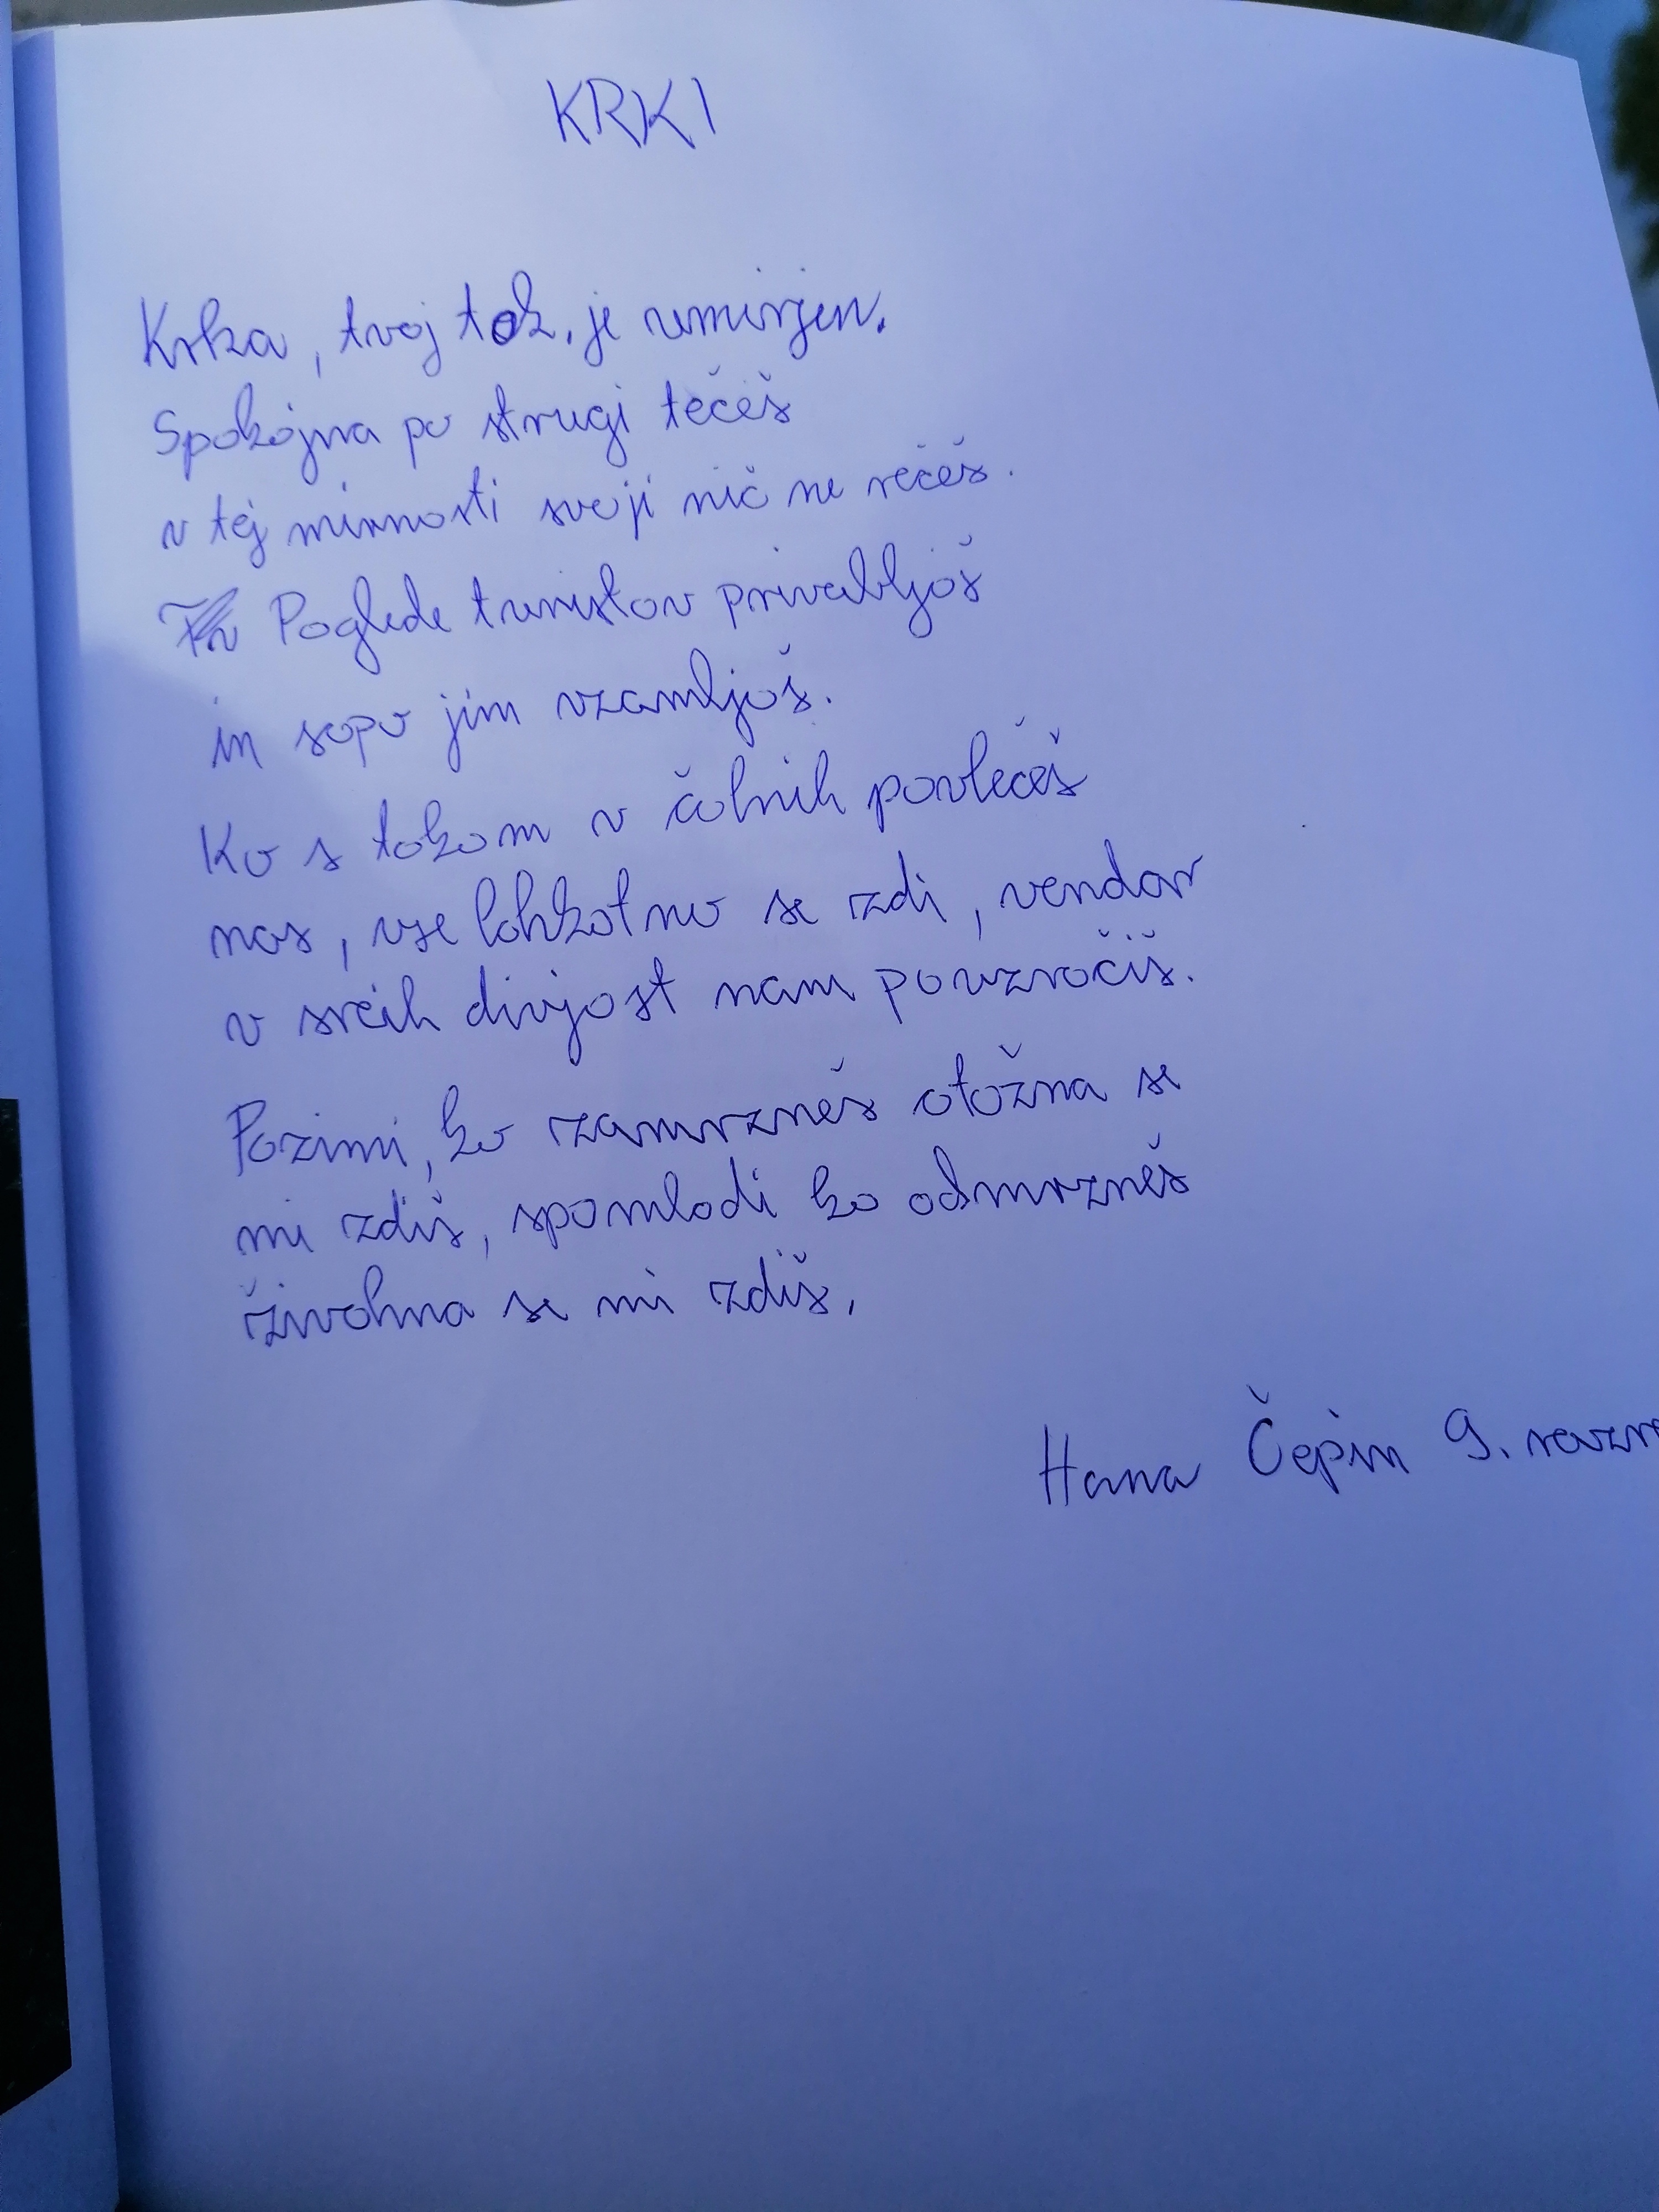 KRKI
Krka, tvoj tok je umirjen.
Spokojna po strugi tečeš
v tej mirnosti svoji nič ne rečeš.
Poglede turistov privabljaš
in sapo jim vzamljaš.
Ko s tokom v čolnih povlečeš
nas, vse lahkotno se zdi, vendar
v srcih divjost nam povzročiš.
Pozimi, ko zamrzneš otožna se
mi zdiš, spomladi ko odmrzneš
živahna se mi zdiš.
Hana Čepin 9. razr